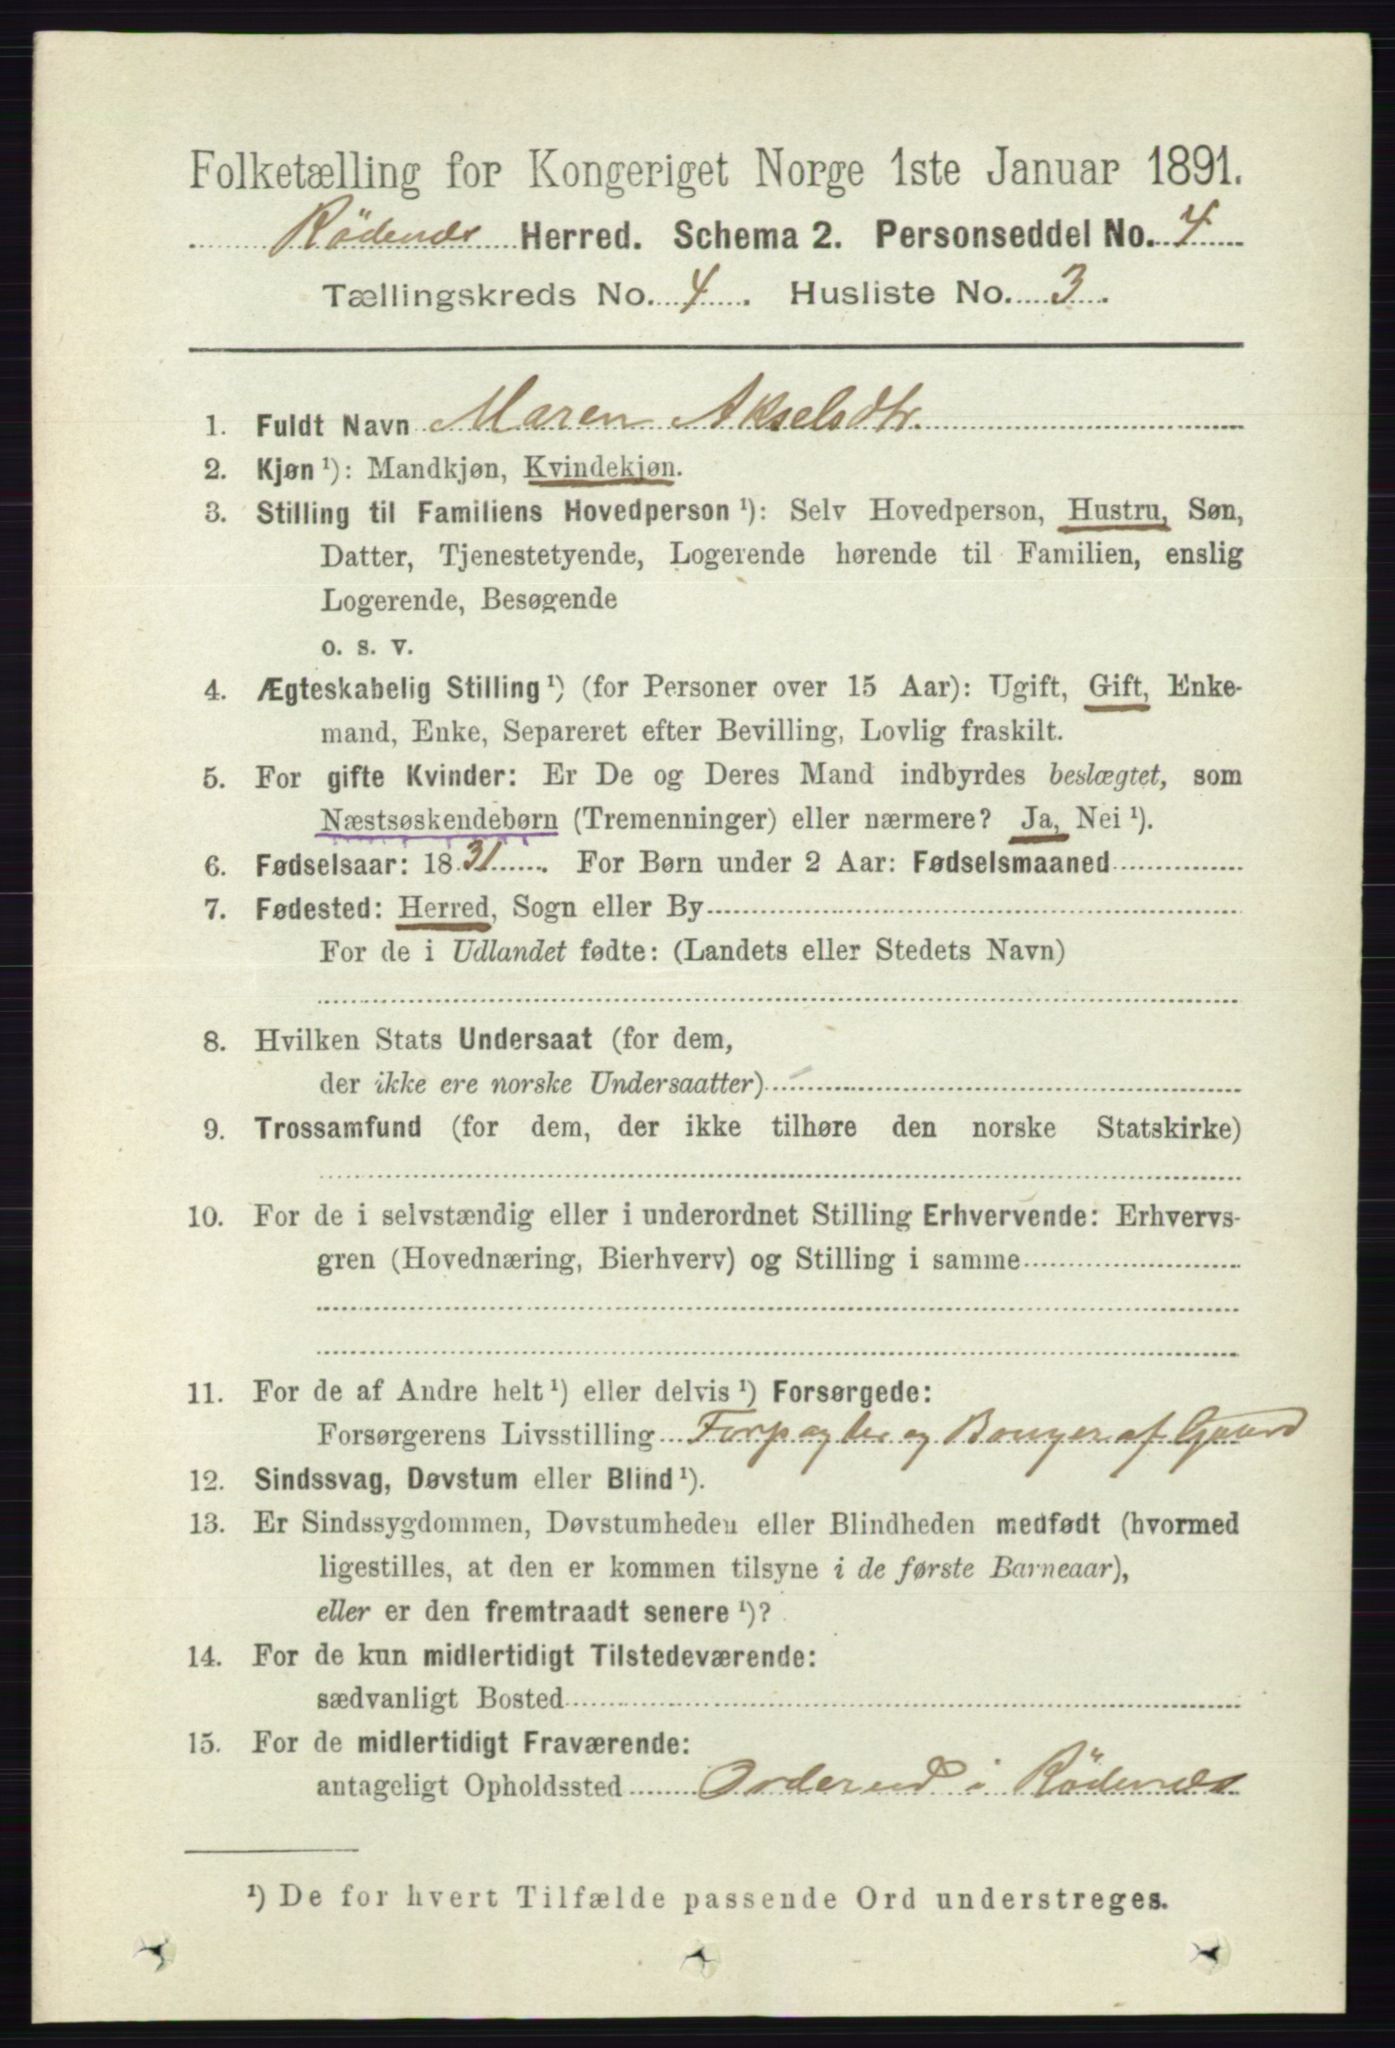 Folketælling for Kongeriget Norge 1ste Januar 1891.
Rödenæs Herred. Schema 2. Personseddel No. 4
Tællingskreds No. 4. Husliste No. 3.
1. Fuldt Navn Maren Akselsdtr.
2. Kjøn ¹): Mandkjøn, Kvindekjøn.
3. Stilling til Familiens Hovedperson ¹): Selv Hovedperson, Hustru, Søn,
Datter, Tjenestetyende, Logerende hørende til Familien, enslig
Logerende, Besøgende
o. s. v.
4. Ægteskabelig Stilling ¹) (for Personer over 15 Aar): Ugift, Gift, Enke-
mand, Enke, Separeret efter Bevilling, Lovlig fraskilt.
5. For gifte Kvinder: Er De og Deres Mand indbyrdes beslægtet, som
Næstsøskendebørn (Tremenninger) eller nærmere? Ja, Nei ¹).
6. Fødselsaar: 1831. For Børn under 2 Aar: Fødselsmaaned
7. Fødested: Herred, Sogn eller By
For de i Udlandet fødte: (Landets eller Stedets Navn)
8. Hvilken Stats Undersaat (for dem,
der ikke ere norske Undersaatter)
9. Trossamfund (for dem, der ikke tilhøre den norske Statskirke)
10. For de i selvstændig eller i underordnet Stilling Erhvervende: Erhvervs-
gren (Hovednæring, Bierhverv) og Stilling i samme
11. For de af Andre helt ¹) eller delvis ¹) Forsørgede:
Forsørgerens Livsstilling Forpagter og Bruger af Gaard
12. Sindssvag, Døvstum eller Blind ¹).
13. Er Sindssygdommen, Døvstumheden eller Blindheden medfødt (hvormed
ligestilles, at den er kommen tilsyne i de første Barneaar),
eller er den fremtraadt senere ¹)?
14. For de kun midlertidigt Tilstedeværende:
sædvanligt Bosted
15. For de midlertidigt Fraværende:
antageligt Opholdssted Orderud i Rödenæs
¹) De for hvert Tilfælde passende Ord understreges.